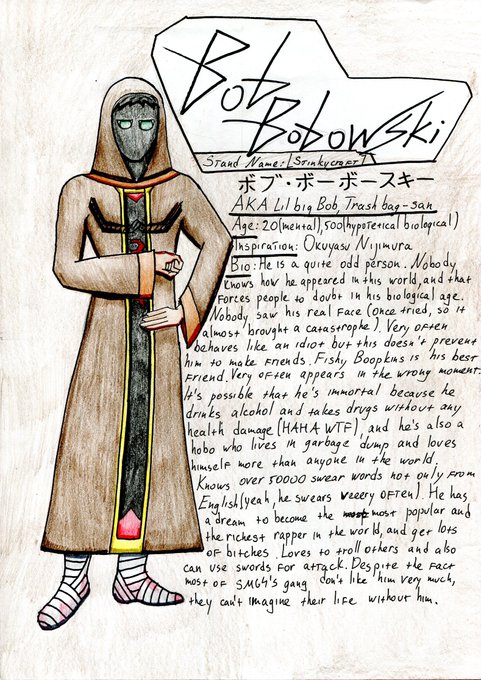 Bob
Bobowski
Stand Name: [Stinkycraft]
ボブ・ボーボースキー
AKA Lil big Bob, Trash bag-san
Age: 20(mental), 500(hypotetical biological)
Inspiration: Okuyasu Nijimura
Bio: He is a quite odd person. Nobody
knows how he appeared in this world, and that
forces people to doubt in his biological age.
Nobody saw his real face (once tried, so it
almost brought a catastrophe). Very often
behaves like an idiot but this doesn't prevent
him to make friends. Fishy Boopkins is his best
friend. Very often appears in the wrong moment.
It's possible that he's immortal because he
drinks alcohol and takes drugs without any
health damage (HAHA WTF), and he's also a
hobo who lives in garbage dump and loves
himself more than anyone in the world.
Knows over 50000 swear words not only from
English (yeah, he swears veeery often). He has
a dream to become the most popular and
the richest rapper in the world, and get lots
of bitches. Loves to troll others and also
can use swords for attack. Despite the fact
most of SMG4's gang don't like him very much,
they can't imagine their life without him.